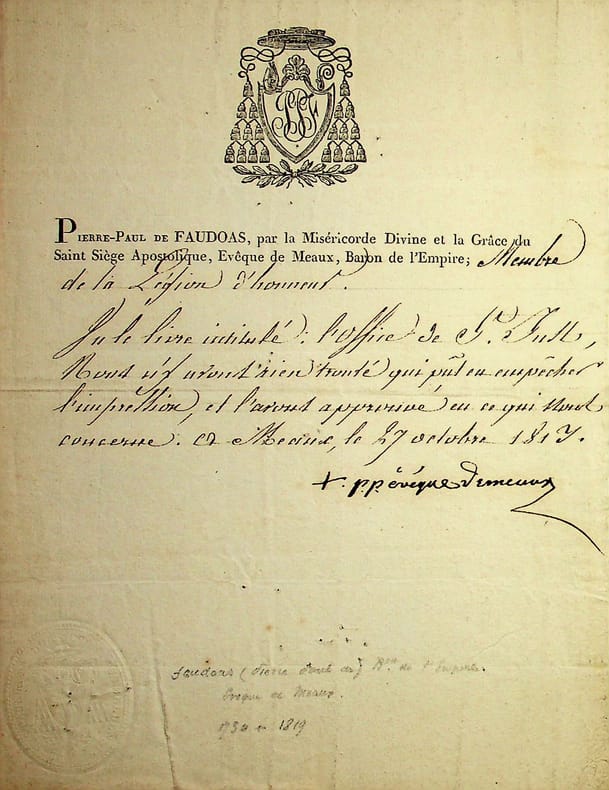 PPF
PIERRE-PAUL DE FAUDOAS, par la Miséricorde Divine et la Grâce du
Saint Siège Apostolique, Evêque de Meaux, Baron de l'Empire; Membre
de la Légion d'honneur.
Vu le livre intitulé: l'office de St. Just,
Nous n'y avons rien trouvé qui pût en empêcher
l'impression, et l'avons approuvé, en ce qui nous
concerne. à Meaux, le 27 octobre 1813.
+ p.p. évêque de meaux
Faudoas (Pierre Paul de) Bon de l'Empire.
Evêque de Meaux.
1750 1819